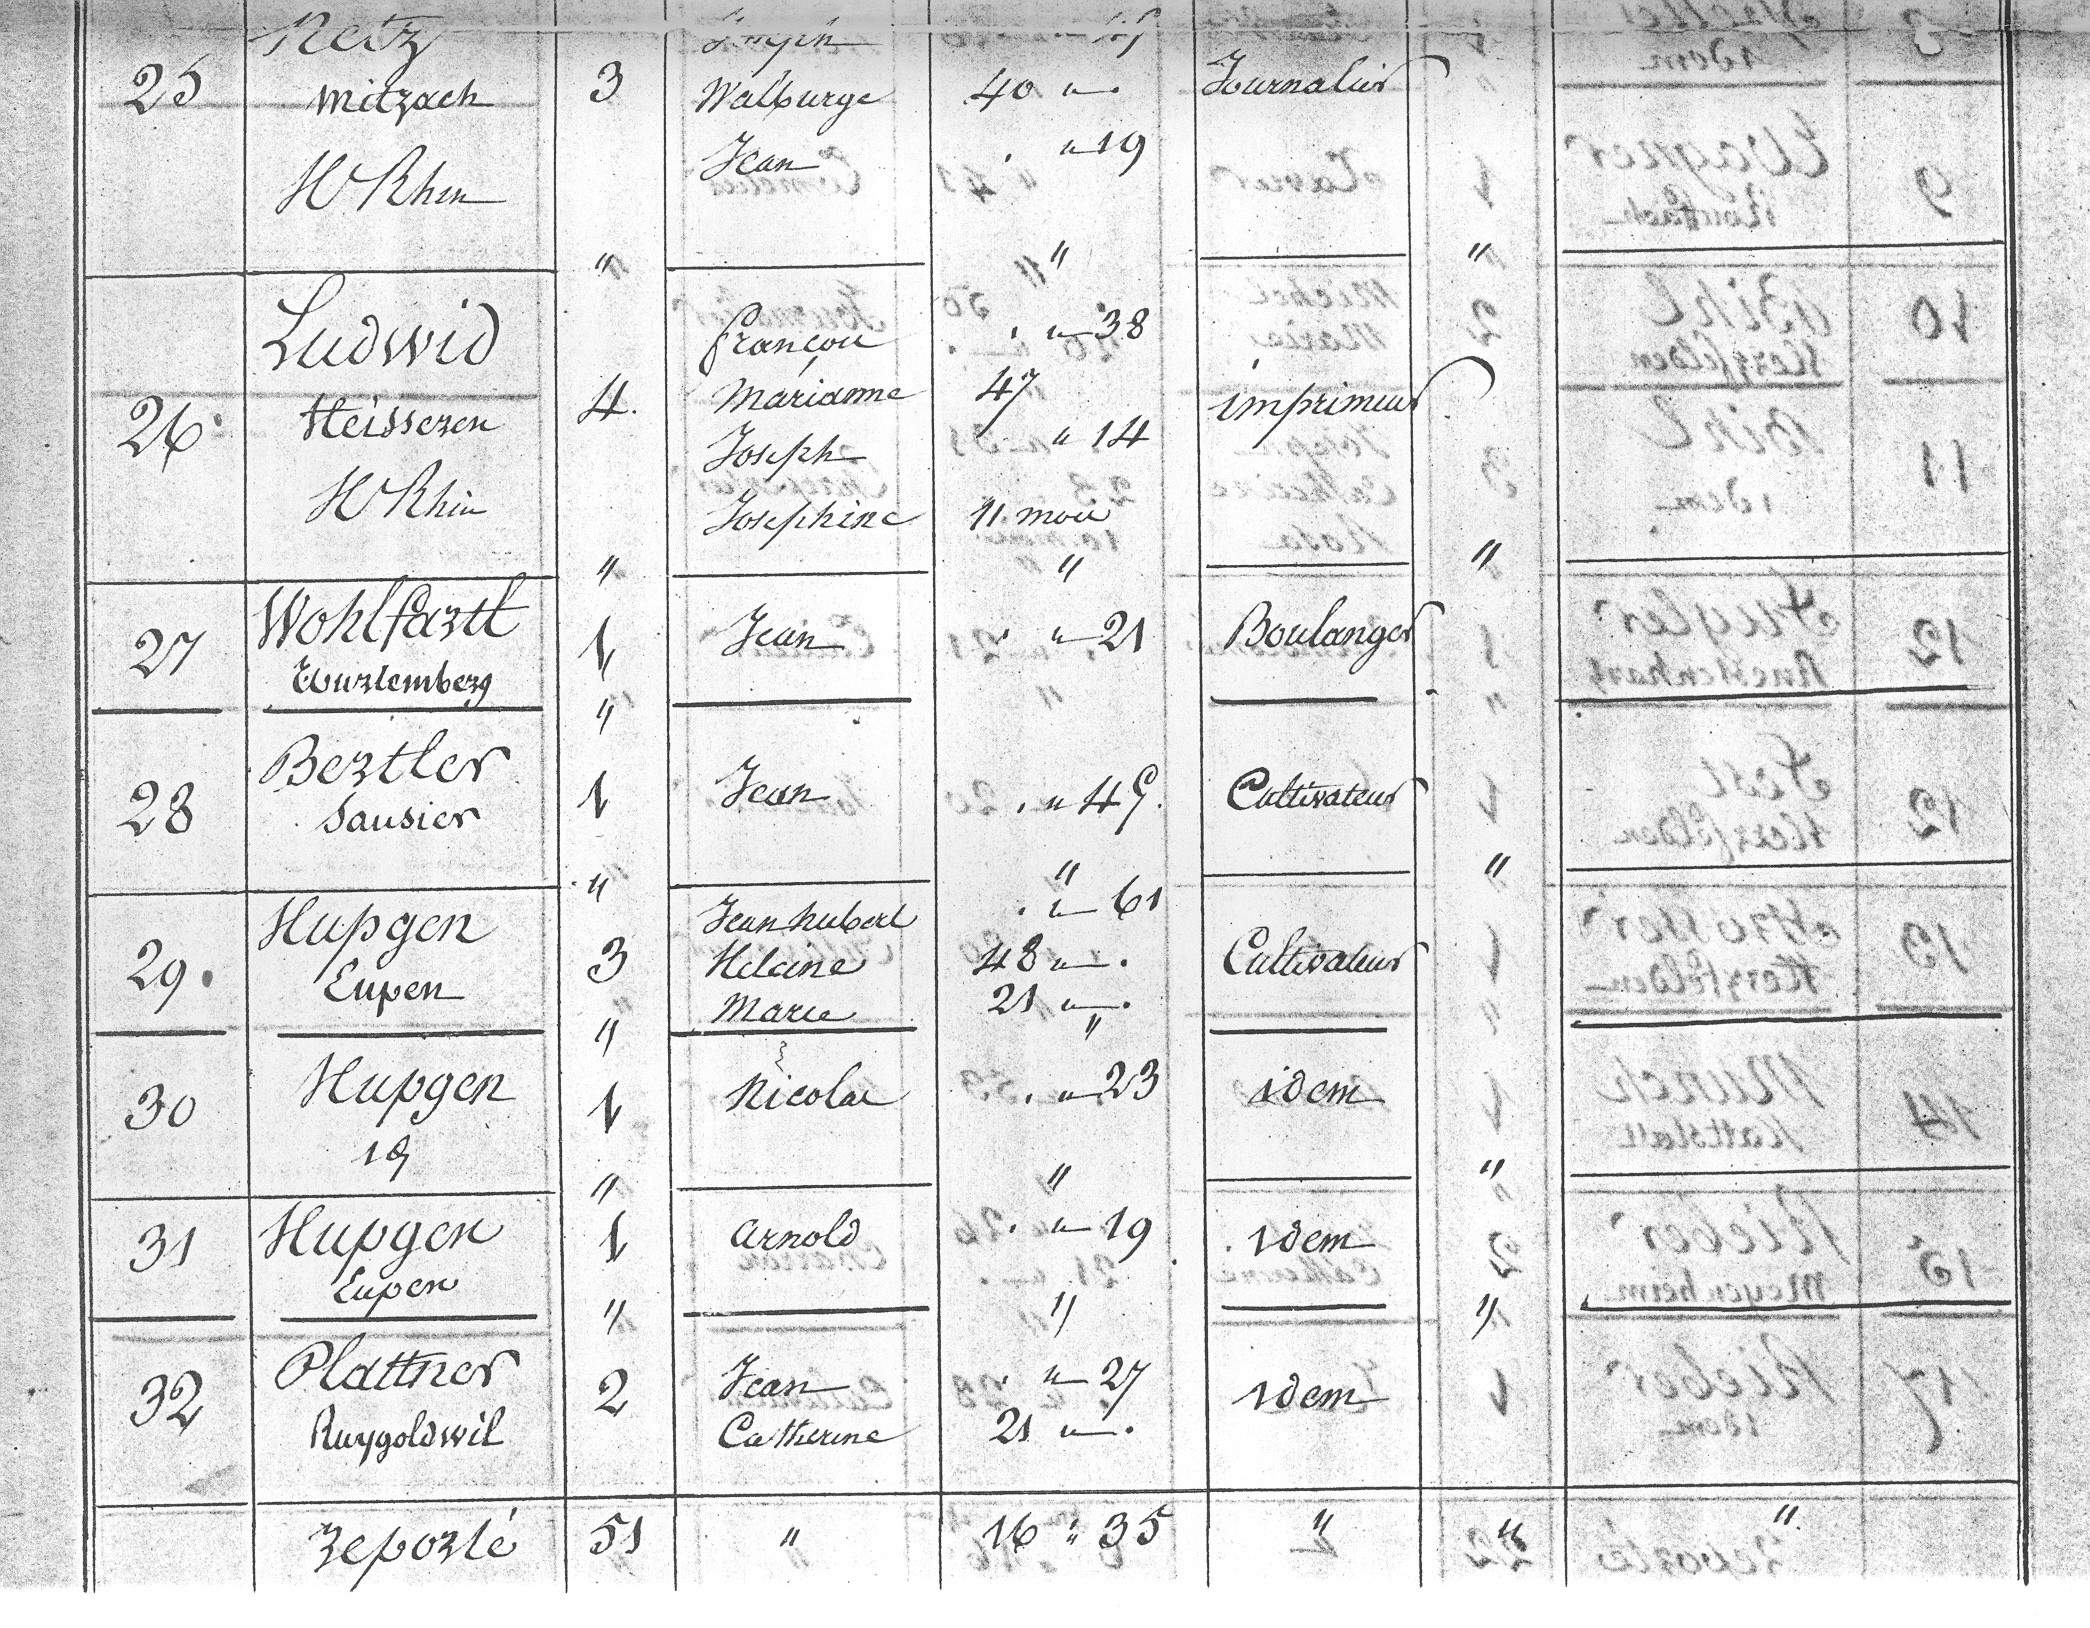 Retz Joseph
25 Mitzach 3 Walburge 40 " . Journalier
Jean . " 19
H Rhin
" " "
Ludwid François . " 38
26 Heisseren 4. Marianne 47 imprimeur
Joseph " 14
H Rhin Josephine 11 mois
" " "
27 Wohlfartt 1 Jean . " 21 Boulanger
Wurtemberg
"
28 Bertler 1 Jean . " 49. Cultivateur
Sausier
" " "
Hupgen Jean hubert . " 61
29. Eupen 3 Helaine 48 " . Cultivateur
Marie 21 " .
" "
30 Hupgen 1 Nicolae . " 23 idem
id
" " "
31 Hupgen 1 Arnold . " 19 idem
Eupen
" " "
32 Plattner 2 Jean . " 27 idem
Ruygoldwil Catherine 21 " .
reporté 51 " 16 " 35 " " "